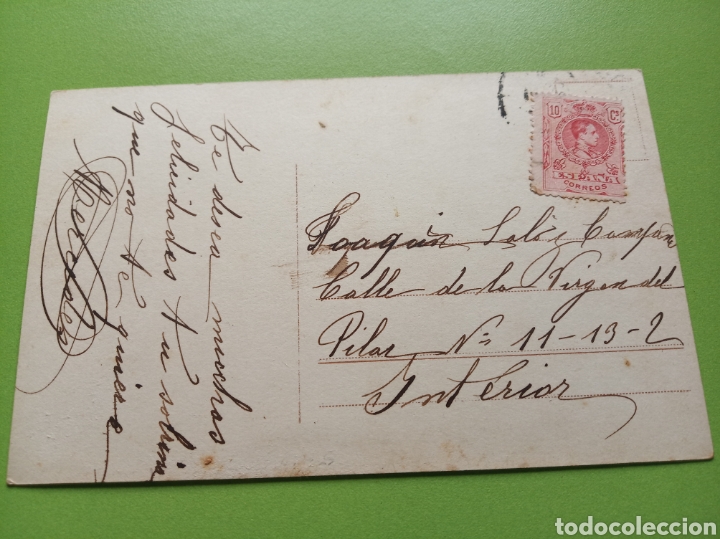 Te desea muchas
felicidades tu sobrina
que no te quiere
Mercedes
10 Cs
ESPAÑA
CORREOS
Joaquin
Calle de la Virgen del
Pilar Nº 11-13-2
Interior
todocoleccion